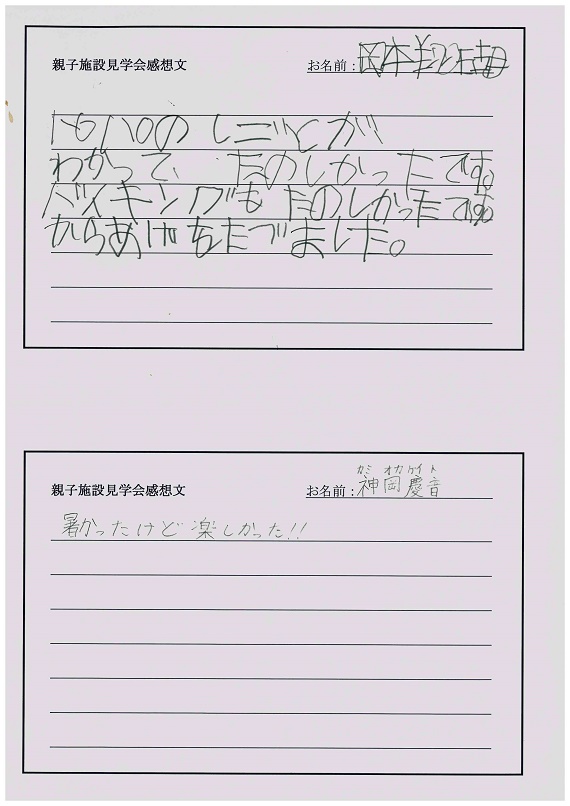 親子施設見学会感想文
お名前：岡本
パパのしごとが
わかって、たのしかったです。
バイキングもたのしかったです。
からあげをたべました。
親子施設見学会感想文
カミ オカ ケイト
お名前：神岡慶音
暑かったけど楽しかった!!